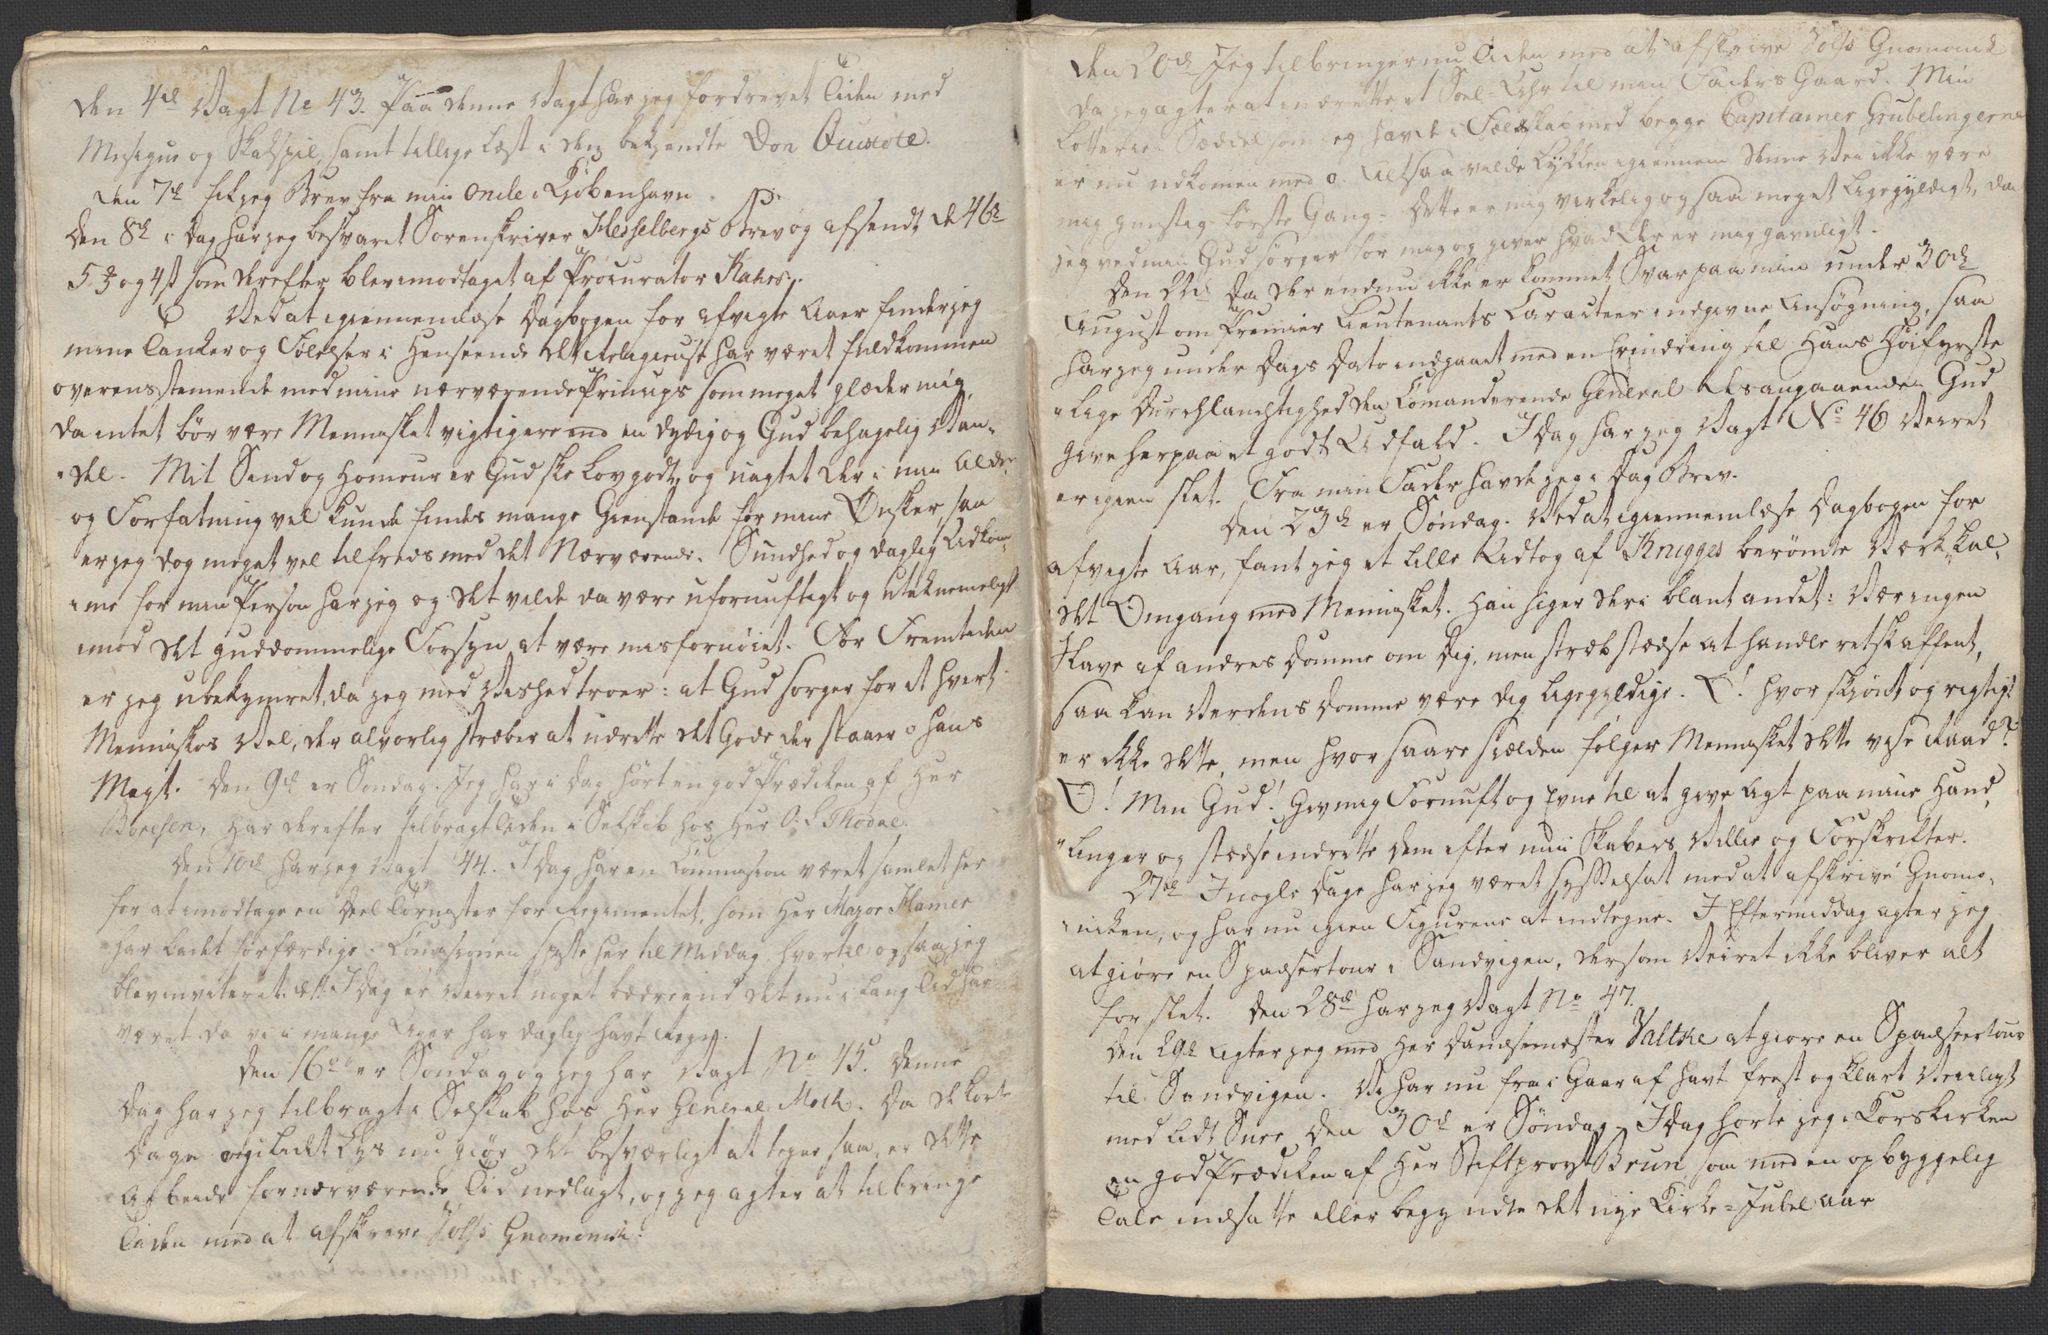 Den 4de Vagt No 43. Paa denne Vagt har jeg fordrevet Tiden med
Musiqve og Skakspil, samt tillige læst i den bekjendte Don Quixote.
Den 7de fik jeg Brev fra min Oncle i Kiöbenhavn.
Den 8de i Dag har jeg besvaret Sorenskriver Hesselbergs Brev og afsendt de 46 Rd
5 ₰ og 4 s som derefter blev modtaget af Procurator Kahrs.
Ved at igiennemlæse Dagbogen for afvigte Aar finder jeg
mine Tanker og Følelser i Henseende det Religieuse har været fuldkommen
overensstemmende med mine nærværende Princips som meget glæder mig,
da intet bör være Mennesket vigtigere end en dydig og Gud behagelig Van-
del. Mit Sind og Homeur er Gud skee Lov godt, og uagtet der i min Alder
og Forfatning vel kunde findes mange Gienstande for mine Ønsker, saa
er jeg dog meget vel tilfreds med det Nærværende. Sundhed og daglig Udkom-
me for min Person har jeg og det vilde da være ufornuftigt og utaknemeligt
imod det guddommelige Forsyn at være misfornöiet. For Fremtiden
er jeg ubekymret, da jeg med Vished troer: at Gud sörger for et hvert
Menniskes Vel, der alvorlig stræber at udrette det Gode der staaer i hans
Magt. Den 9de er Søndag. Jeg har i Dag hört en god Prædiken af Her
Boresen, har derefter tilbragt Tiden i Selskab hos Her O. L. Skodal.
Den 10de har jeg Vagt 44. I Dag har en Commission været samlet her
for at modtage en Deel Tornister for Regimentet, som Her Major Hamer
har ladet forfærdige. Commissionen spiste her til Middag hvortil ogsaa jeg
blev inviteret. I Dag er Veiret noget bedre end det nu i lang Tid har
været da vi i mange Uger har daglig havt Regn.
Den 16de er Søndag og jeg har Vagt No 45. Denne
Dag har jeg tilbragt i Selskab hos Her General Meck. Da de korte
Dage og Lys nu giör det besværligt at tegne saa er dette
Arbeide for nærværende Tid nedlagt, og jeg agter at tilbringe
Tiden med at afskrive Volfs Gnomonik.
Den 20de Jeg tilbringer nu Tiden med at afskrive Volfs Gnomonik
da jeg agter at indrette et Soel-Uhr til min Faders Gaard. Min
Lotterie-Sæddel som jeg havde i Fælleskab med begge Capitainer Grubelingerne
er nu udkomen med 0. Altsaa vilde Lykken igiennem denne Vei ikke være
mig gunstig første Gang. Dette er mig virkelig ogsaa meget ligegyldigt, da
jeg ved min Gud sörger for mig og giver hvad der er mig gavnligt.
Den 22de Da der endnu ikke er kommet Svar paa min under 30de
August om Premier Lieutenants Caracteer indgivne Ansøgning, saa
har jeg under Dags Dato indgaaet med en Erindring til Hans Höifyrste-
lige Durchlauchtighed den Comanderende General desangaaende. Gud
give herpaa et godt Udfald. I Dag har jeg Vagt No 46 Veiret
er igien slet. Fra min Fader havde jeg i Dag Brev.
Den 23de er Søndag. Ved at igiennemlæse Dagbogen for
afvigte Aar, fant jeg et lille Udtog af Knigges berömte Værk, kal-
det Omgang med Mennisket. Han siger deri blant andet: Vær ingen
Slave af andres Domme om dig, men stræb stedse at handle retskaffent,
saa kan Verdens Domme være dig ligegyldige. O! hvor skiönt og rigtigt
er ikke dette, men hvor saare sielden fölger Mennisket dette vise Raad?
O! Min Gud! Giv mig Fornuft og Evne til at give Agt paa mine Hand-
linger og stædse indrette dem efter min Skabers Villie og Forskrifter.
27de I nogle Dage har jeg været sysselsat med at afskrive Gnomo-
niken, og har nu igien Figurene at indtegne. I Eftermiddag agter jeg
at giöre en Spadsertour i Sandvigen, dersom Veiret ikke bliver alt
for slet. Den 28de har jeg Vagt No 47.
Den 29de Agter jeg med Her Dandsemester Valtke at giöre en Spadseertour
til Sandvigen. Vi har nu fra i Gaar af havt Frost og klart Veirligt
med lidt Snee. Den 30te er Søndag. I Dag hörte jeg i Korskirken
en god Prædiken af Her Stiftprovst Brun som med en opbyggelig
Tale indsatte eller begyndte det nye Kirke-Jubel aar